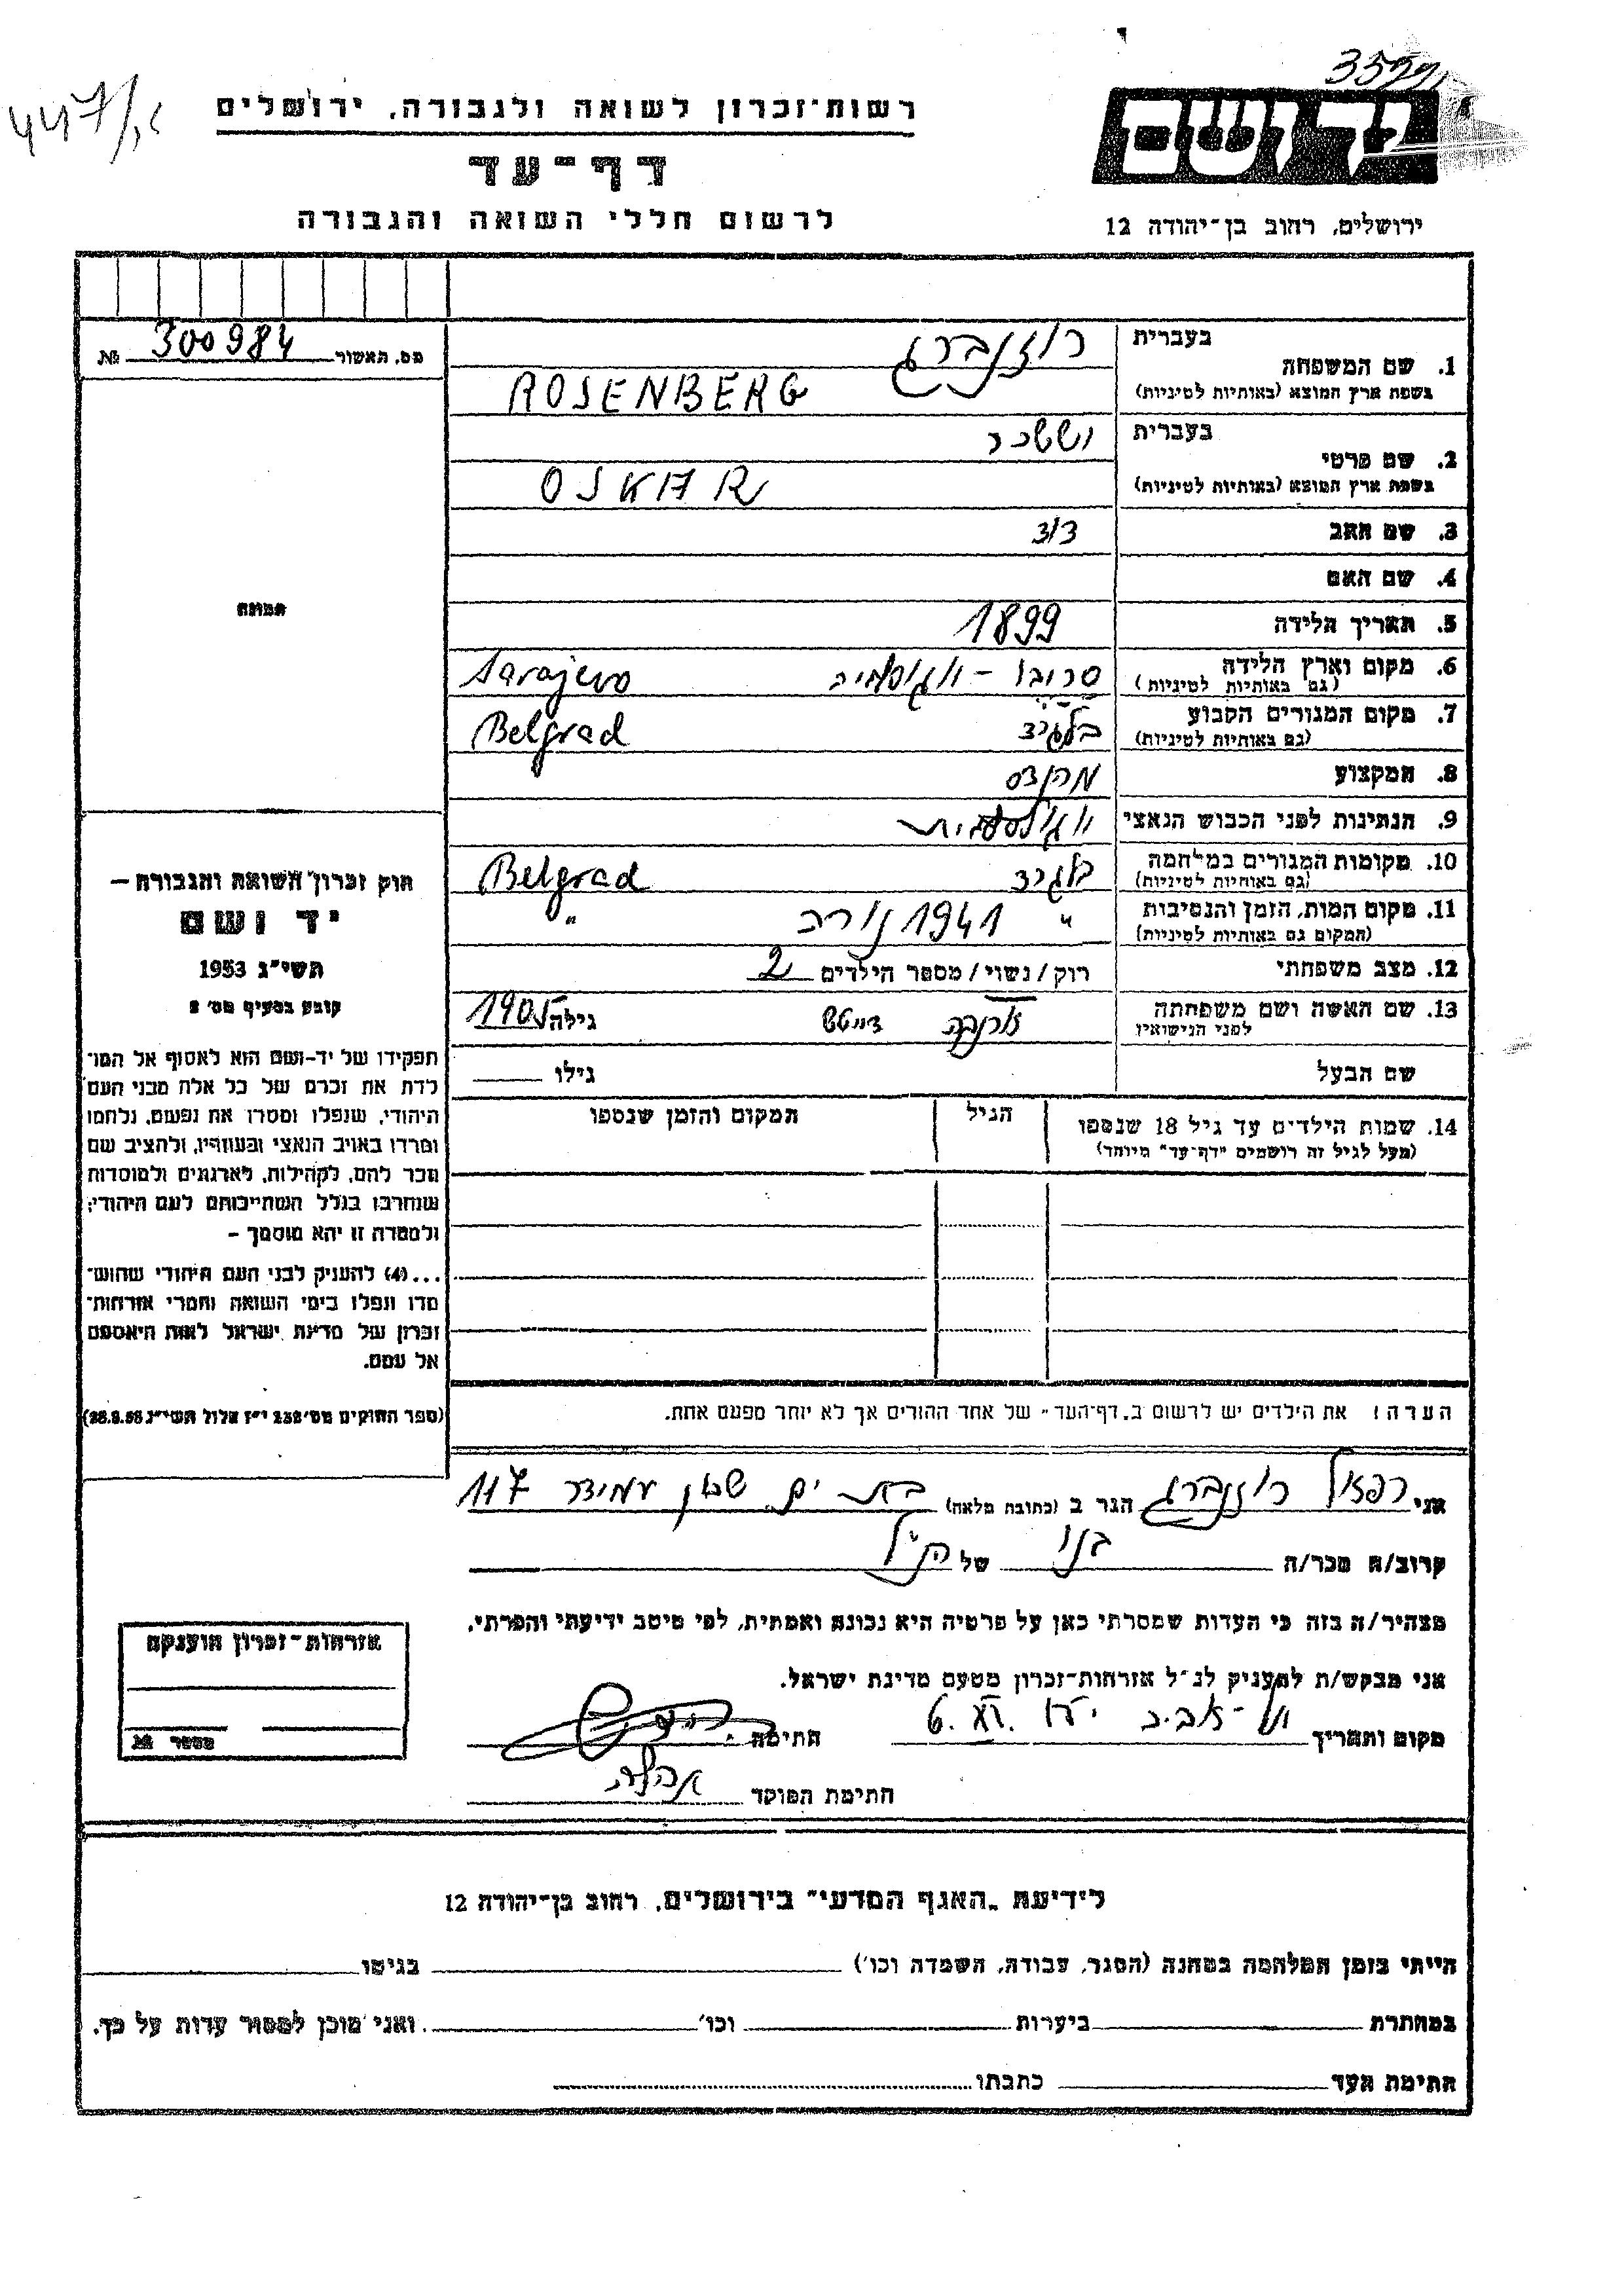 447/
3522
רשות־זכרון לשואה ולגבורה, ירושלים
יד ושם
דף־עד
לרשום חללי השואה והגבורה
ירושלים, רחוב בן־יהודה 12
מס. תאשור 300984 №
בעברית
רוזנברג
1. שם המשפחה
בשפת ארץ המוצא (באותיות לטיניות)
ROSENBERG
בעברית
יששכר
2. שם פרטי
בשפת ארץ המוצא (באותיות לטיניות)
OSKAR
3. שם האב דוד
4. שם האם
תמונה
5. תאריך הלידה 1899
6. מקום וארץ הלידה
(גם באותיות לטיניות)
Sarajevo
7. מקום המגורים הקבוע
(גם באותיות לטיניות)
בלגרד Belgrad
8. המקצוע מהנדס
9. הנתינות לפני הכבוש הנאצי
10. מקומות המגורים במלחמה
(גם באותיות לטיניות)
בלגרד Belgrad
11. מקום המות, הזמן והנסיבות
(המקום גם באותיות לטיניות)
" 1941 נורה "
12. מצב משפחתי רוק / נשוי / מספר הילדים 2
13. שם האשה ושם משפחתה
לפני הנישואין
דויטש גילה 1905
שם הבעל גילו
14. שמות הילדים עד גיל 18 שנספו
(מעל לגיל זה רושמים "דף־עד" מיוחד)
הגיל
המקום והזמן שנספו
חוק זכרון השואה והגבורה –
יד ושם
תשי"ג 1953
קובע בסעיף מס׳ 2
תפקידו של יד-ושם הוא לאסוף אל המו־
לדת את זכרם של כל אלה מבני העם
היהודי, שנפלו ומסרו את נפשם, נלחמו
ומרדו באויב הנאצי ובעוזריו, ולהציב שם
וזכר להם, לקהילות, לארגונים ולמוסדות
שנחרבו בגלל השתייכותם לעם היהודי;
ולמטרה זו יהא מוסמך –
...(4) להעניק לבני העם היהודי שהוש־
מדו ונפלו בימי השואה והמרי אזרחות־
זכרון של מדינת ישראל לאות היאספם
אל עמם.
(ספר החוקים מס׳ 132 י"ז אלול תשי"ג 28.8.53)
הערה: את הילדים יש לרשום ב„דף־העד" של אחד ההורים אך לא יותר מפעם אחת.
אני רפאל רוזנברג הגר ב (כתובת מלאה) בת ים שכון עמידר 117
קרוב/ה מכר/ה בנו של הנ"ל
מצהיר/ה בזה כי העדות שמסרתי כאן על פרטיה היא נכונה ואמתית, לפי מיטב ידיעתי והכרתי.
אני מבקש/ת להעניק לנ"ל אזרחות־זכרון מטעם מדינת ישראל.
מקום ותאריך תל־אביב 6.XI חתימה
חתימת הפוקד
אזרחות־זכרון הוענקה
מספר №
לידיעת „האגף המדעי" בירושלים, רחוב בן־יהודה 12
הייתי בזמן המלחמה במחנה (הסגר, עבודה, השמדה וכו׳) בגיטו
במחתרת ביערות וכו׳ ואני מוכן למסור עדות על כך.
חתימת העד כתבתו